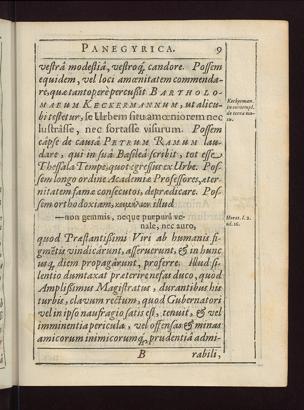 PANEGYRICA. 9
vestrâ modestiâ, vestroq́; candore. Possem
equidem, vel loci amœnitatem commenda-
re, quæ tantoperè percussit BARTHOLO-
MAEUM KECKERMANNUM, ut alicu-
bi testetur, se Urbem situ amœniorem nec
lustrâsse, nec fortasse visurum. Possem
eâpse de causâ PETRUM RAMUM lau-
dare, qui in suâ Basileâ scribit, tot esse
Thessala Tempe, quot egressus ex Urbe. Pos-
sem longo ordine Academiæ Professores, æter-
nitatem famæ consecutos, deprædicare. Pos-
sem orthodoxiam, illud
—non gemmis, neque purpurâ ve-
nale, nec auro,
quod Præstantissimi Viri ab humanis fi-
gmentis vindicârunt, asseruerunt, & in hunc
usq; diem propagârunt, proferre. Illud si-
lentio dumtaxat præterire nefas duco, quod
Amplissimus Magistratus, durantibus his
turbis, clavum rectum, quod Gubernatori
vel in ipso naufragio satis est, tenuit, & vel
imminentia pericula, vel offensas & minas
amicorum inimicorumq́; prudentiâ admi-
B rabili,
Keckerman.
in
de terræ mo-
tu.
Horat. l. 2.
od. 16.